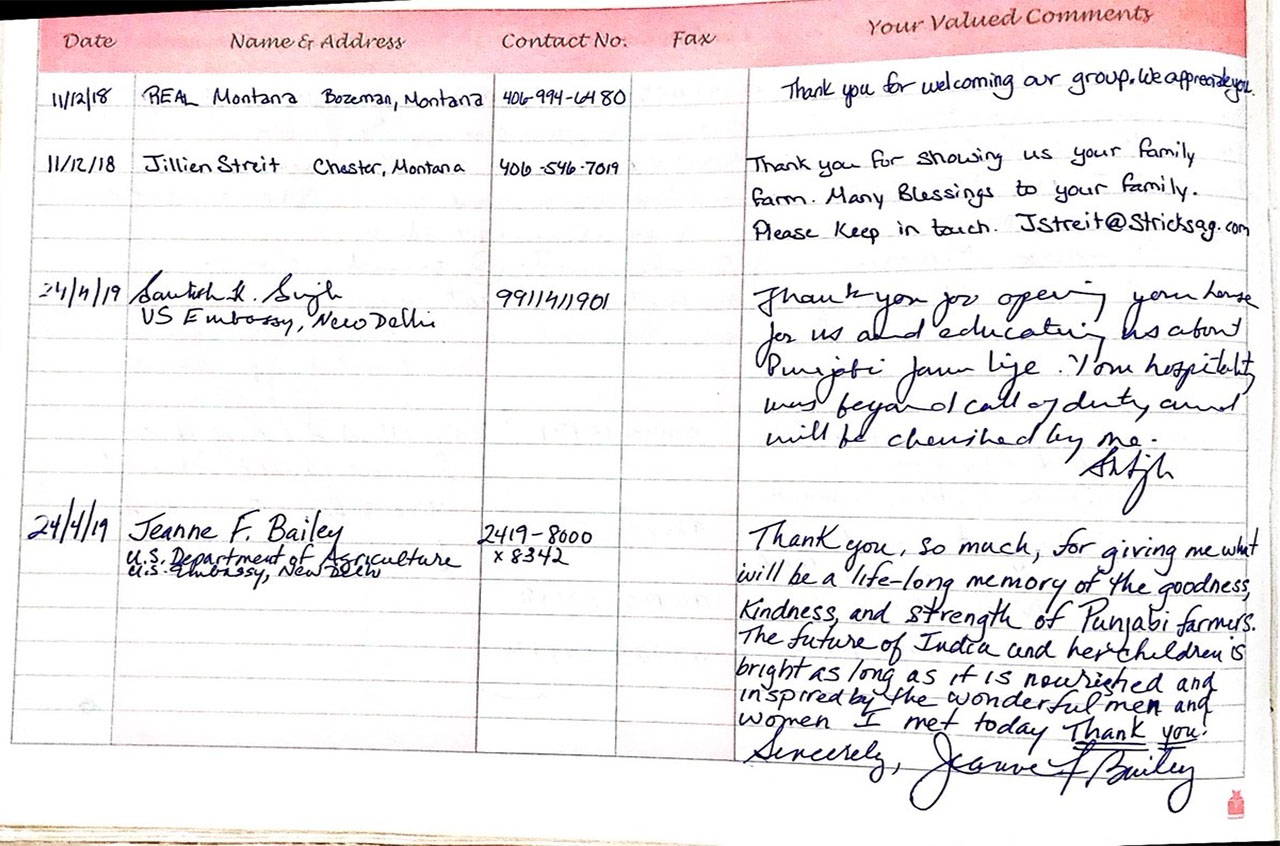 Date Name & Address Contact No. Fax Your Valued Comments
11/12/18 REAL Montana Bozeman, Montana 406-994-6480 Thank you for welcoming our group. We appreciate you.
11/12/18 Jillien Streit Chester, Montana 406-546-7019 Thank you for showing us your family
farm. Many Blessings to your family.
Please Keep in touch. JStreit@Stricksag.com
24/4/19 Santosh K. Singh 9911411901 Thank you for opening your house
US Embassy, New Delhi for us and educating us about
Punjabi farm life. Your hospitality
was beyond call of duty and
will be cherished by me.
24/4/19 Jeanne F. Bailey 2419-8000 Thank you, so much, for giving me what
U.S. Department of Agriculture x 8342
U.S. Embassy, New Delhi will be a life-long memory of the goodness,
Kindness, and strength of Punjabi farmers.
The future of India and her children is
bright as long as it is nourished and
inspired by the wonderful men and
women I met today Thank you!
Sincerely, Jeanne F Bailey